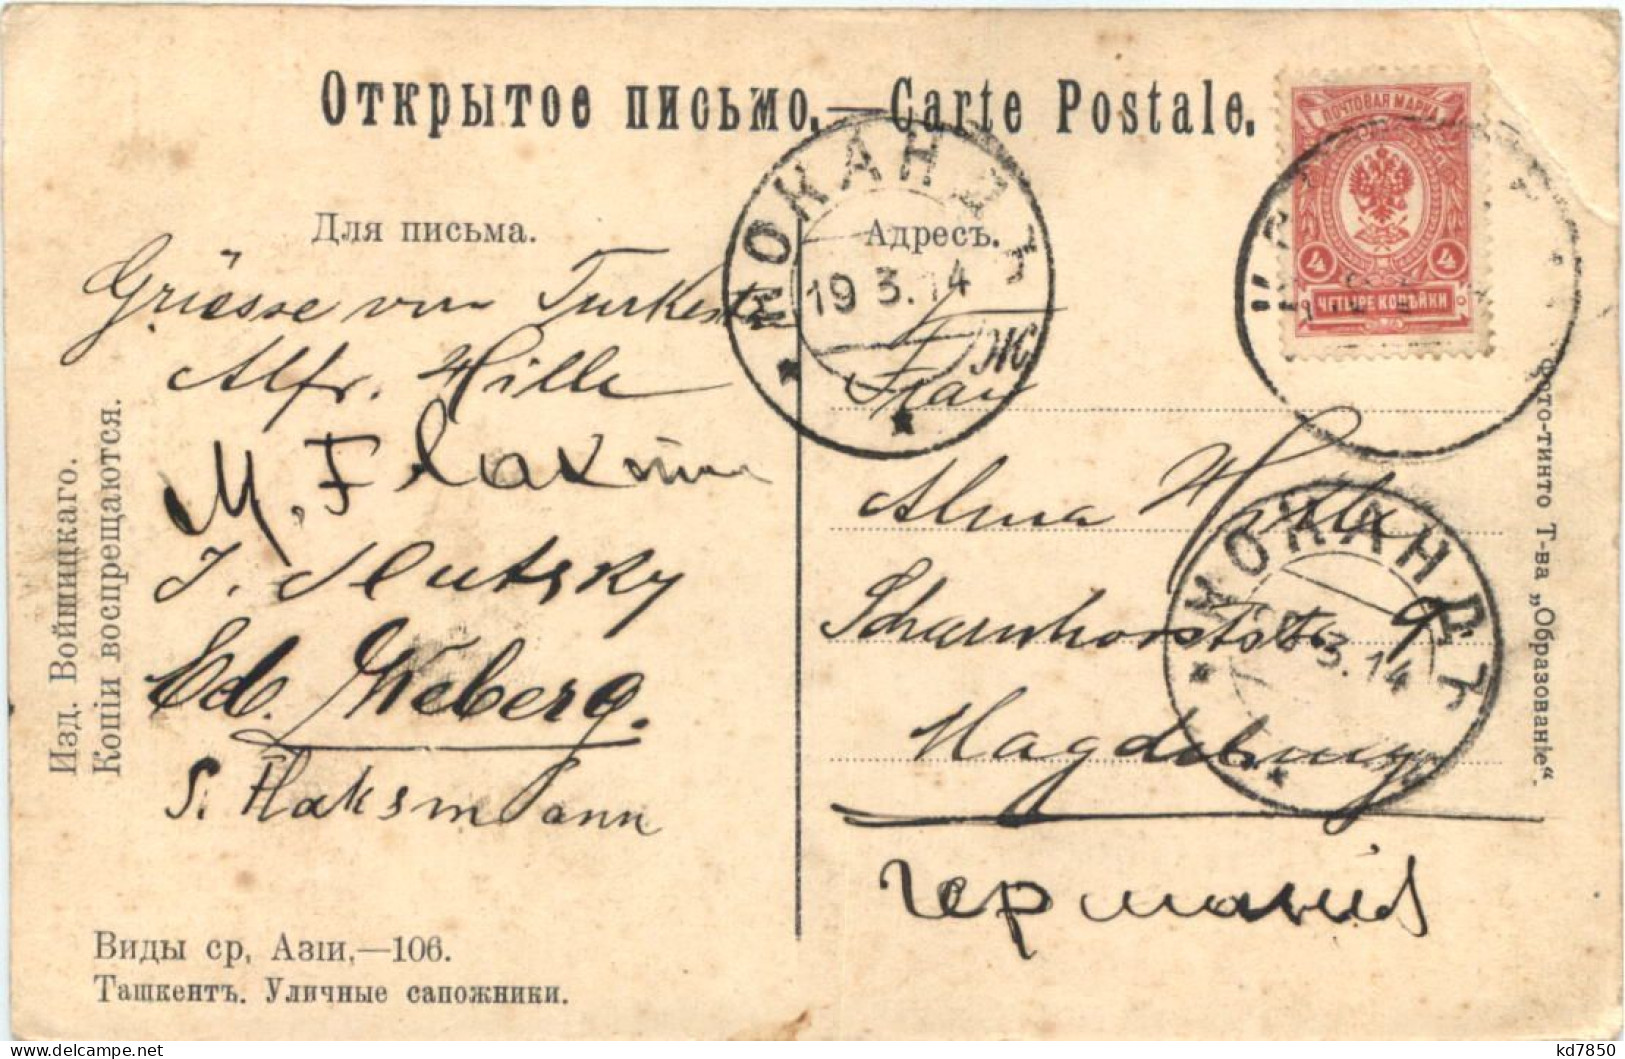 Открытое письмо.—Carte Postale.
ПОЧТОВАЯ МАРКА
4 4
ЧЕТЫРЕ КОПѢЙКИ
Для письма.
Адресъ.
КОКАНДЪ
19 3.14
Ж
Grüsse von Turkestan
Alfr. Hille
M. Flaksman
J. Slutzky
Ed. Weberg.
S. Flaksmann
Frau
Alma Hille
Scharnhorststr. 9
Magdeburg
Германія
КОКАНДЪ
3.14
Изд. Войшицкаго.
Копіи воспрещаются.
Фото-тинто Т-ва „Образованіе“.
Виды ср, Азіи,—106.
Ташкентъ. Уличные сапожники.
kd7850